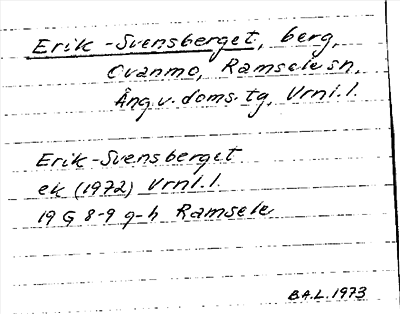 Erik-Svensberget, berg,
Ovanmo, Ramsele sn,
Ång.v. doms. tg, Vrnl. l.
Erik-Svensberget
ek (1972) Vrnl. l.
19 G 8-9 g-h Ramsele
B.A.L. 1973